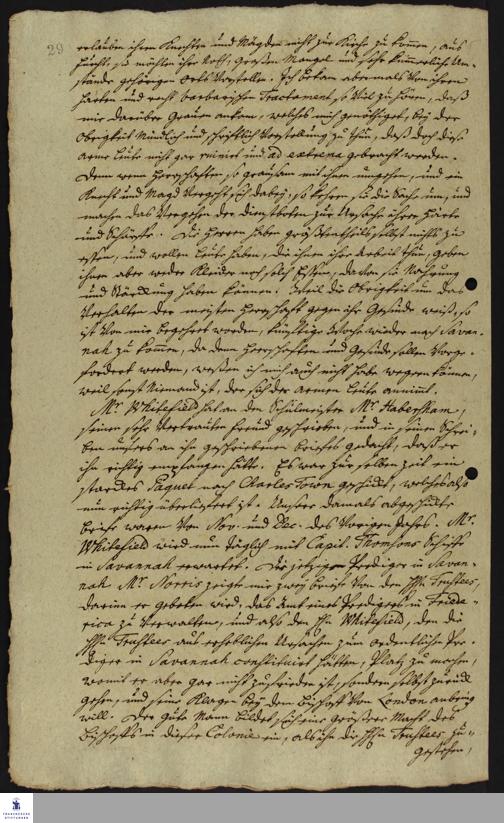 29
erlauben ihren Knechten und Mägden nicht zur Kirche zu kommen, aus
Furcht, sie möchten ihre Noth, großen Mangel und sehr kümmerliche Um-
stände gehörigen Orts vorstellen. Ich bekam abermals von ihrem
harten und recht barbarischen Tractament so viel zu hören, daß
mir darüber Grauen ankam, welches mich genöthiget, bey der
Obrigkeit mündlich und schriftlich Vorstellung zu thun, daß doch diese
arme Leute nicht gar ruinirt und ad extrema gebracht werden.
Denn wenn Herrschaften so grausam mit ihnen umgehen, und ein
Knecht und Magd vergeht sich dabey, so kehren sie die Sache um, und
machen das Vergehen der Dienstboten zur Ursache ihrer Härte
und Schärfe. Die Herren haben größtentheils selbst nichts zu
essen, und wollen Leute haben, die ihnen ihre Arbeit thun, geben
ihnen aber weder Kleider noch solch Essen, davon sie Nahrung
und Stärckung haben können. Weil die Obrigkeit um das
Verhalten der meisten Herrschaft gegen ihr Gesinde weiß, so
ist von mir begehret worden, künftige Woche wieder nach Savan-
nah zu kommen, da denn Herrschaften und Gesinde sollen vorge-
fordert werden, welches ich mich auch nicht habe wegern können,
weil sonst niemand ist, der sich der armen Leute annimt.
Mr. Whitefield hat an den Schulmeister Mr. Habersham,
seinen sehr vertrauten Freund geschrieben, und in seinem Schrei-
ben unsers an ihn geschriebenen Briefes gedacht, daß er
ihn richtig empfangen hätte. Es war zur selben Zeit ein
starckes Paquet nach Charles Town geschickt, welches also
nun richtig überliefert ist. Unsere damals abgeschickte
Briefe waren von Nov. und Dec. des vorigen Jahrs. Mr.
Whitefield wird nun täglich mit Capit. Thomsons Schiffe
in Savannah erwartet. Der jetzige Prediger in Savan-
nah Mr. Norris zeigte mir zwey Briefe von den HHn Trustees,
darinn er gebeten wird, das Amt eines Predigers in Friede-
rica zu verwalten, und also dem Hn Whitefield, den die
HHn Trustees aus erheblichen Ursachen zum ordentlichen Pre-
diger in Savannah constituirt hätten, Platz zu machen,
womit er aber gar nicht zufrieden ist, sondern selbst zurück
gehen, und seine Klagen bey dem Bischoff von London anbringen
will. Der gute Mann bildet sich eine größere Macht des
Bischoffs in dieser Colonie ein, als ihm die HHn Trustees zu-
gestehen,
FRANCKESCHE
STIFTUNGEN